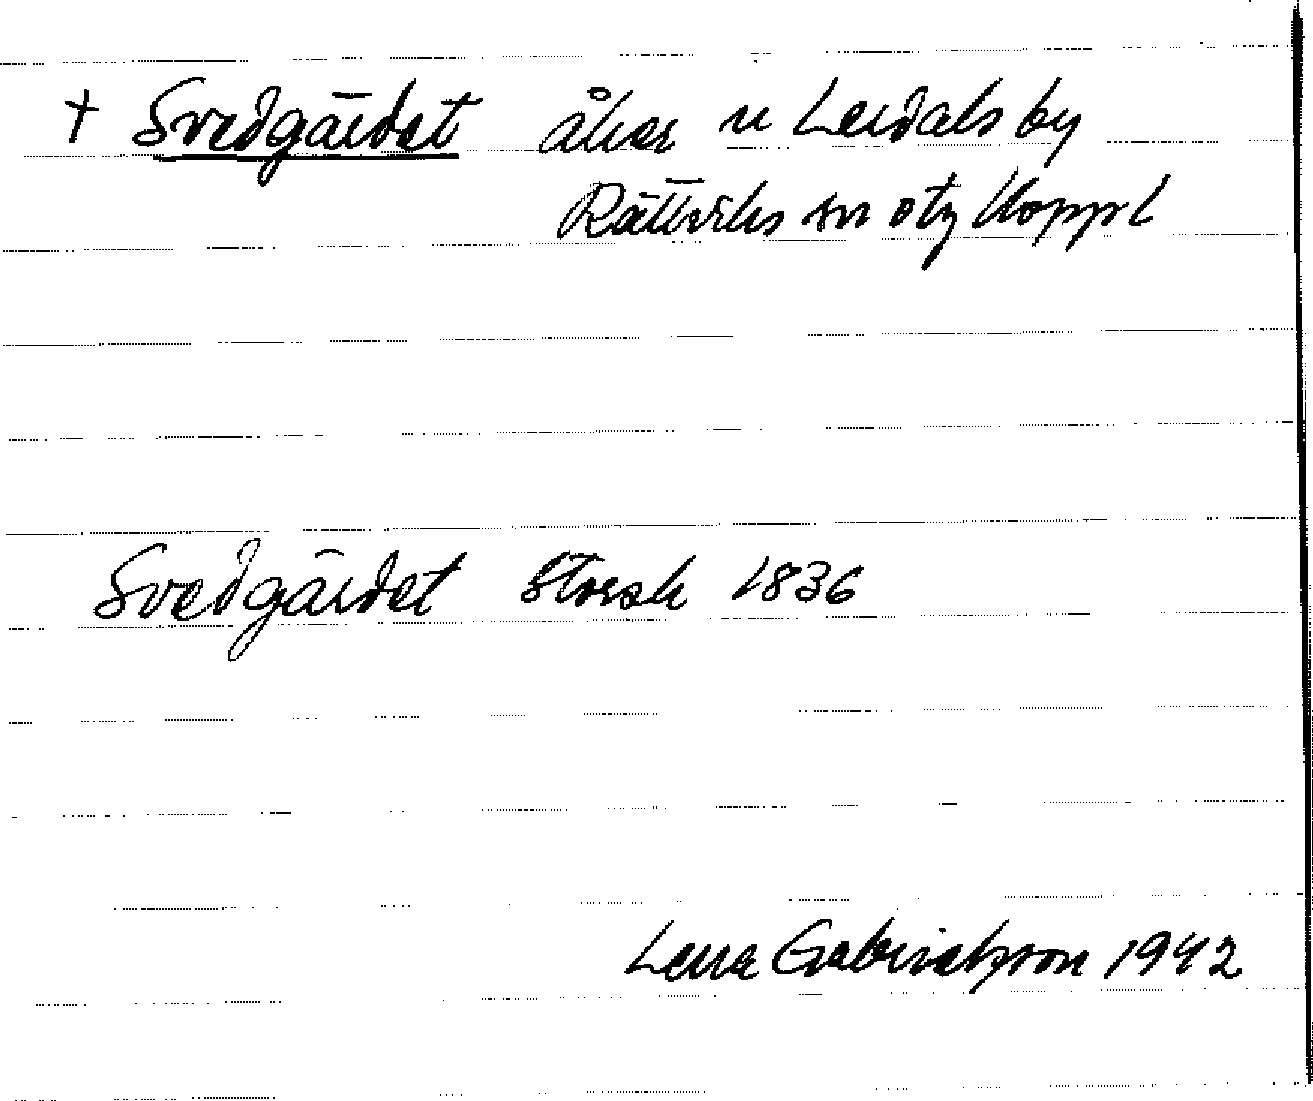 † Svedgärdet åker u Lerdals by
Rättviks sn o tg Koppl
Svedgärdet Storsk 1836
Lena Gabrielsson 1942